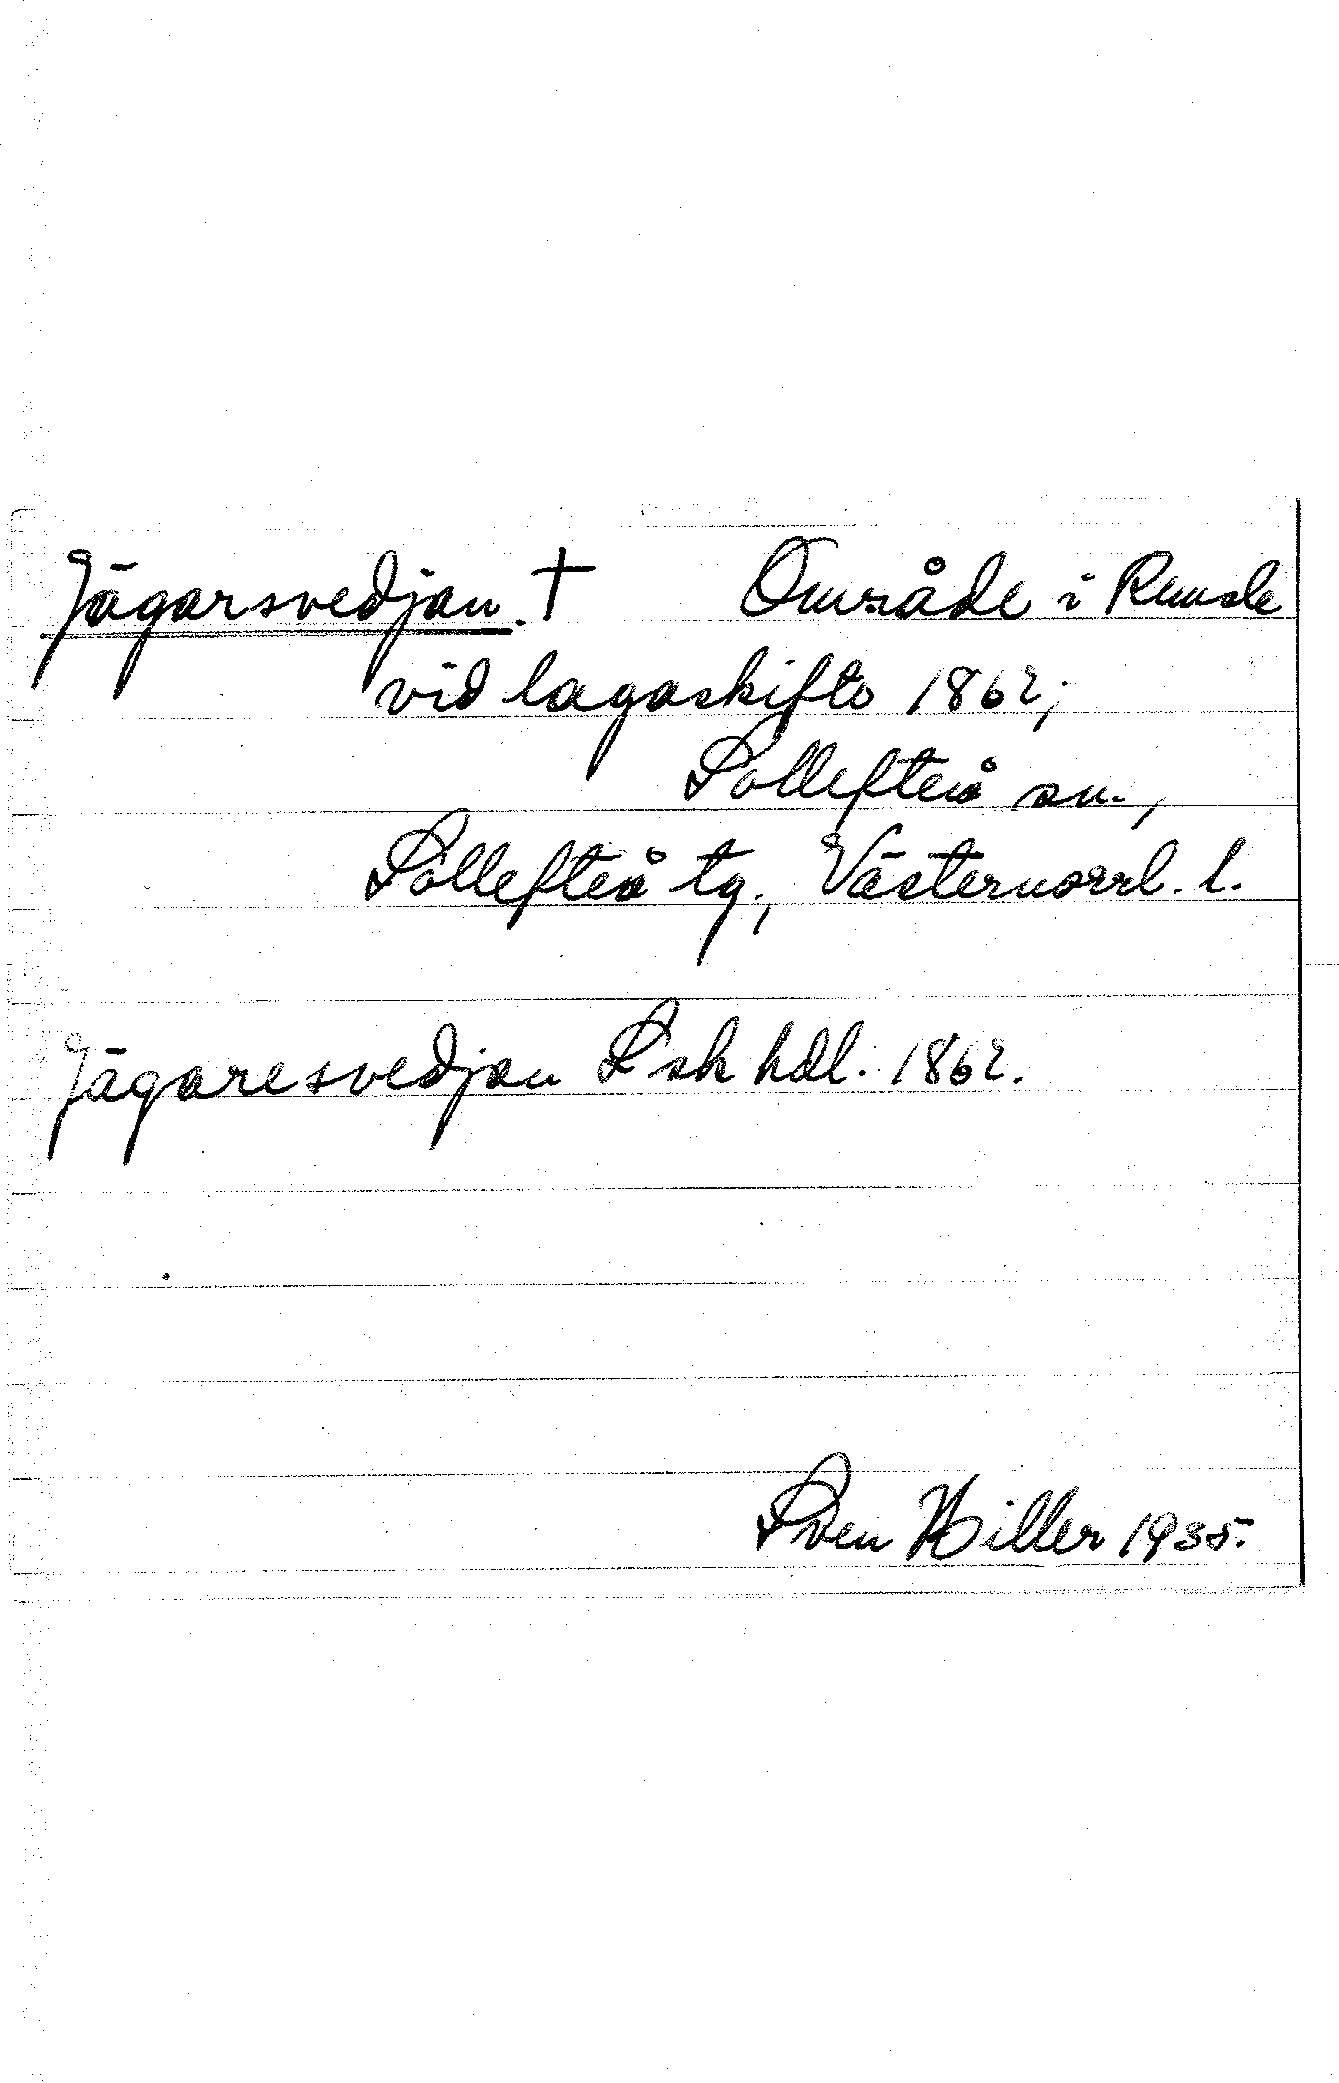 Jägarsvedjan. † Område i Remsle
vid lagaskifte 1862;
Sollefteå sn.,
Sollefteå tg., Västernorrl. l.
Jägaresvedjan Lsk hdl. 1862.
Sven Hiller 1935.